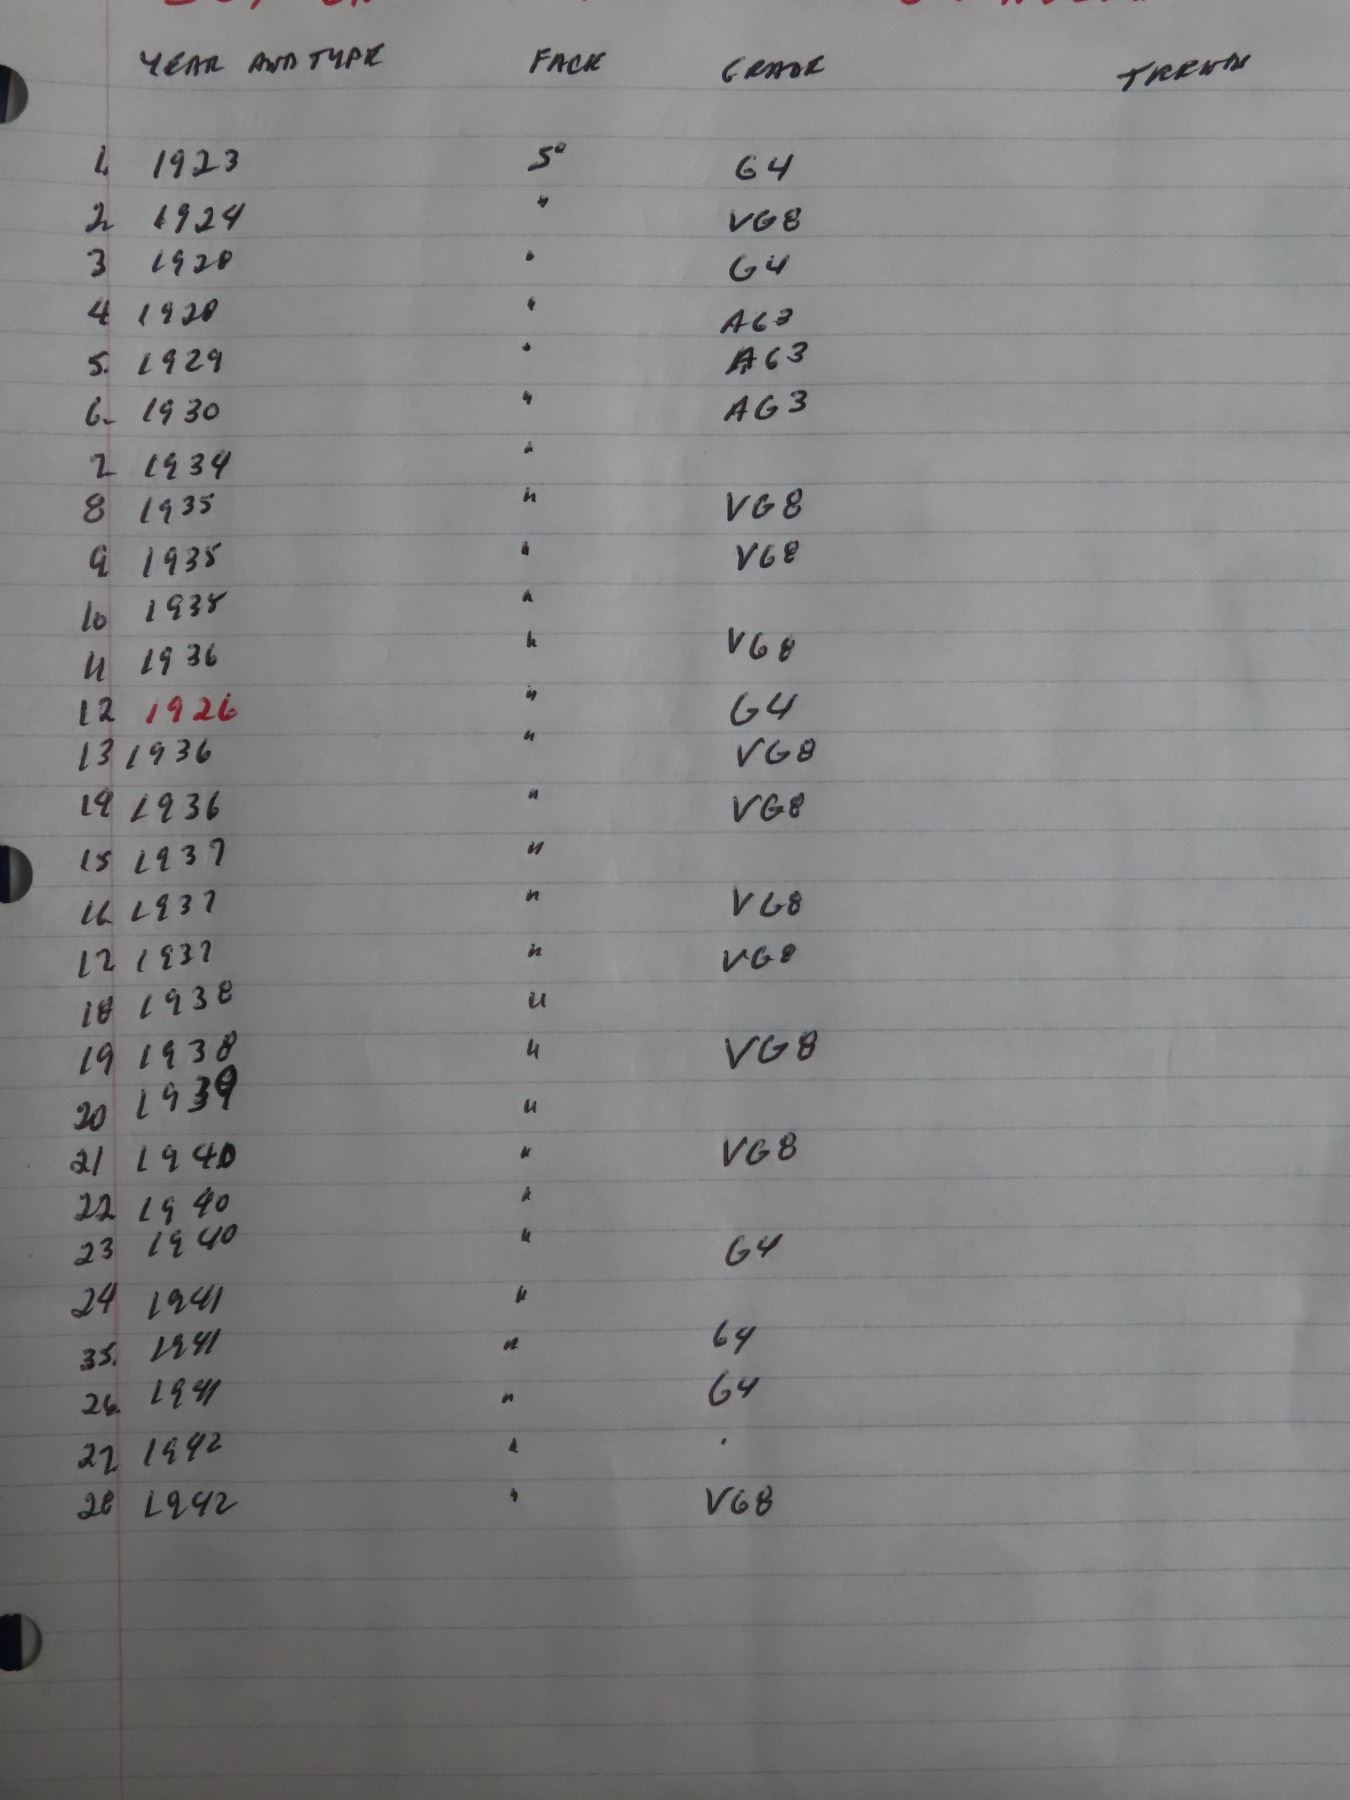 YEAR AND TYPE FACE GRADE TREND
1. 1923 5¢ G4
2 1924 " VG8
3 1928 " G4
4 1928 " AG3
5. 1929 " AG3
6. 1930 " AG3
7 1934 "
8 1935 " VG8
9 1935 " VG8
10 1935 "
11 1936 " VG8
12 1926 " G4
13 1936 " VG8
14 1936 " VG8
15 1937 "
16 1937 " VG8
17 1937 " VG8
18 1938 "
19 1938 " VG8
20 1939 "
21 1940 " VG8
22 1940 "
23 1940 " G4
24 1941 "
35. 1941 " G4
26. 1941 " G4
27 1942 "
28 1942 " VG8